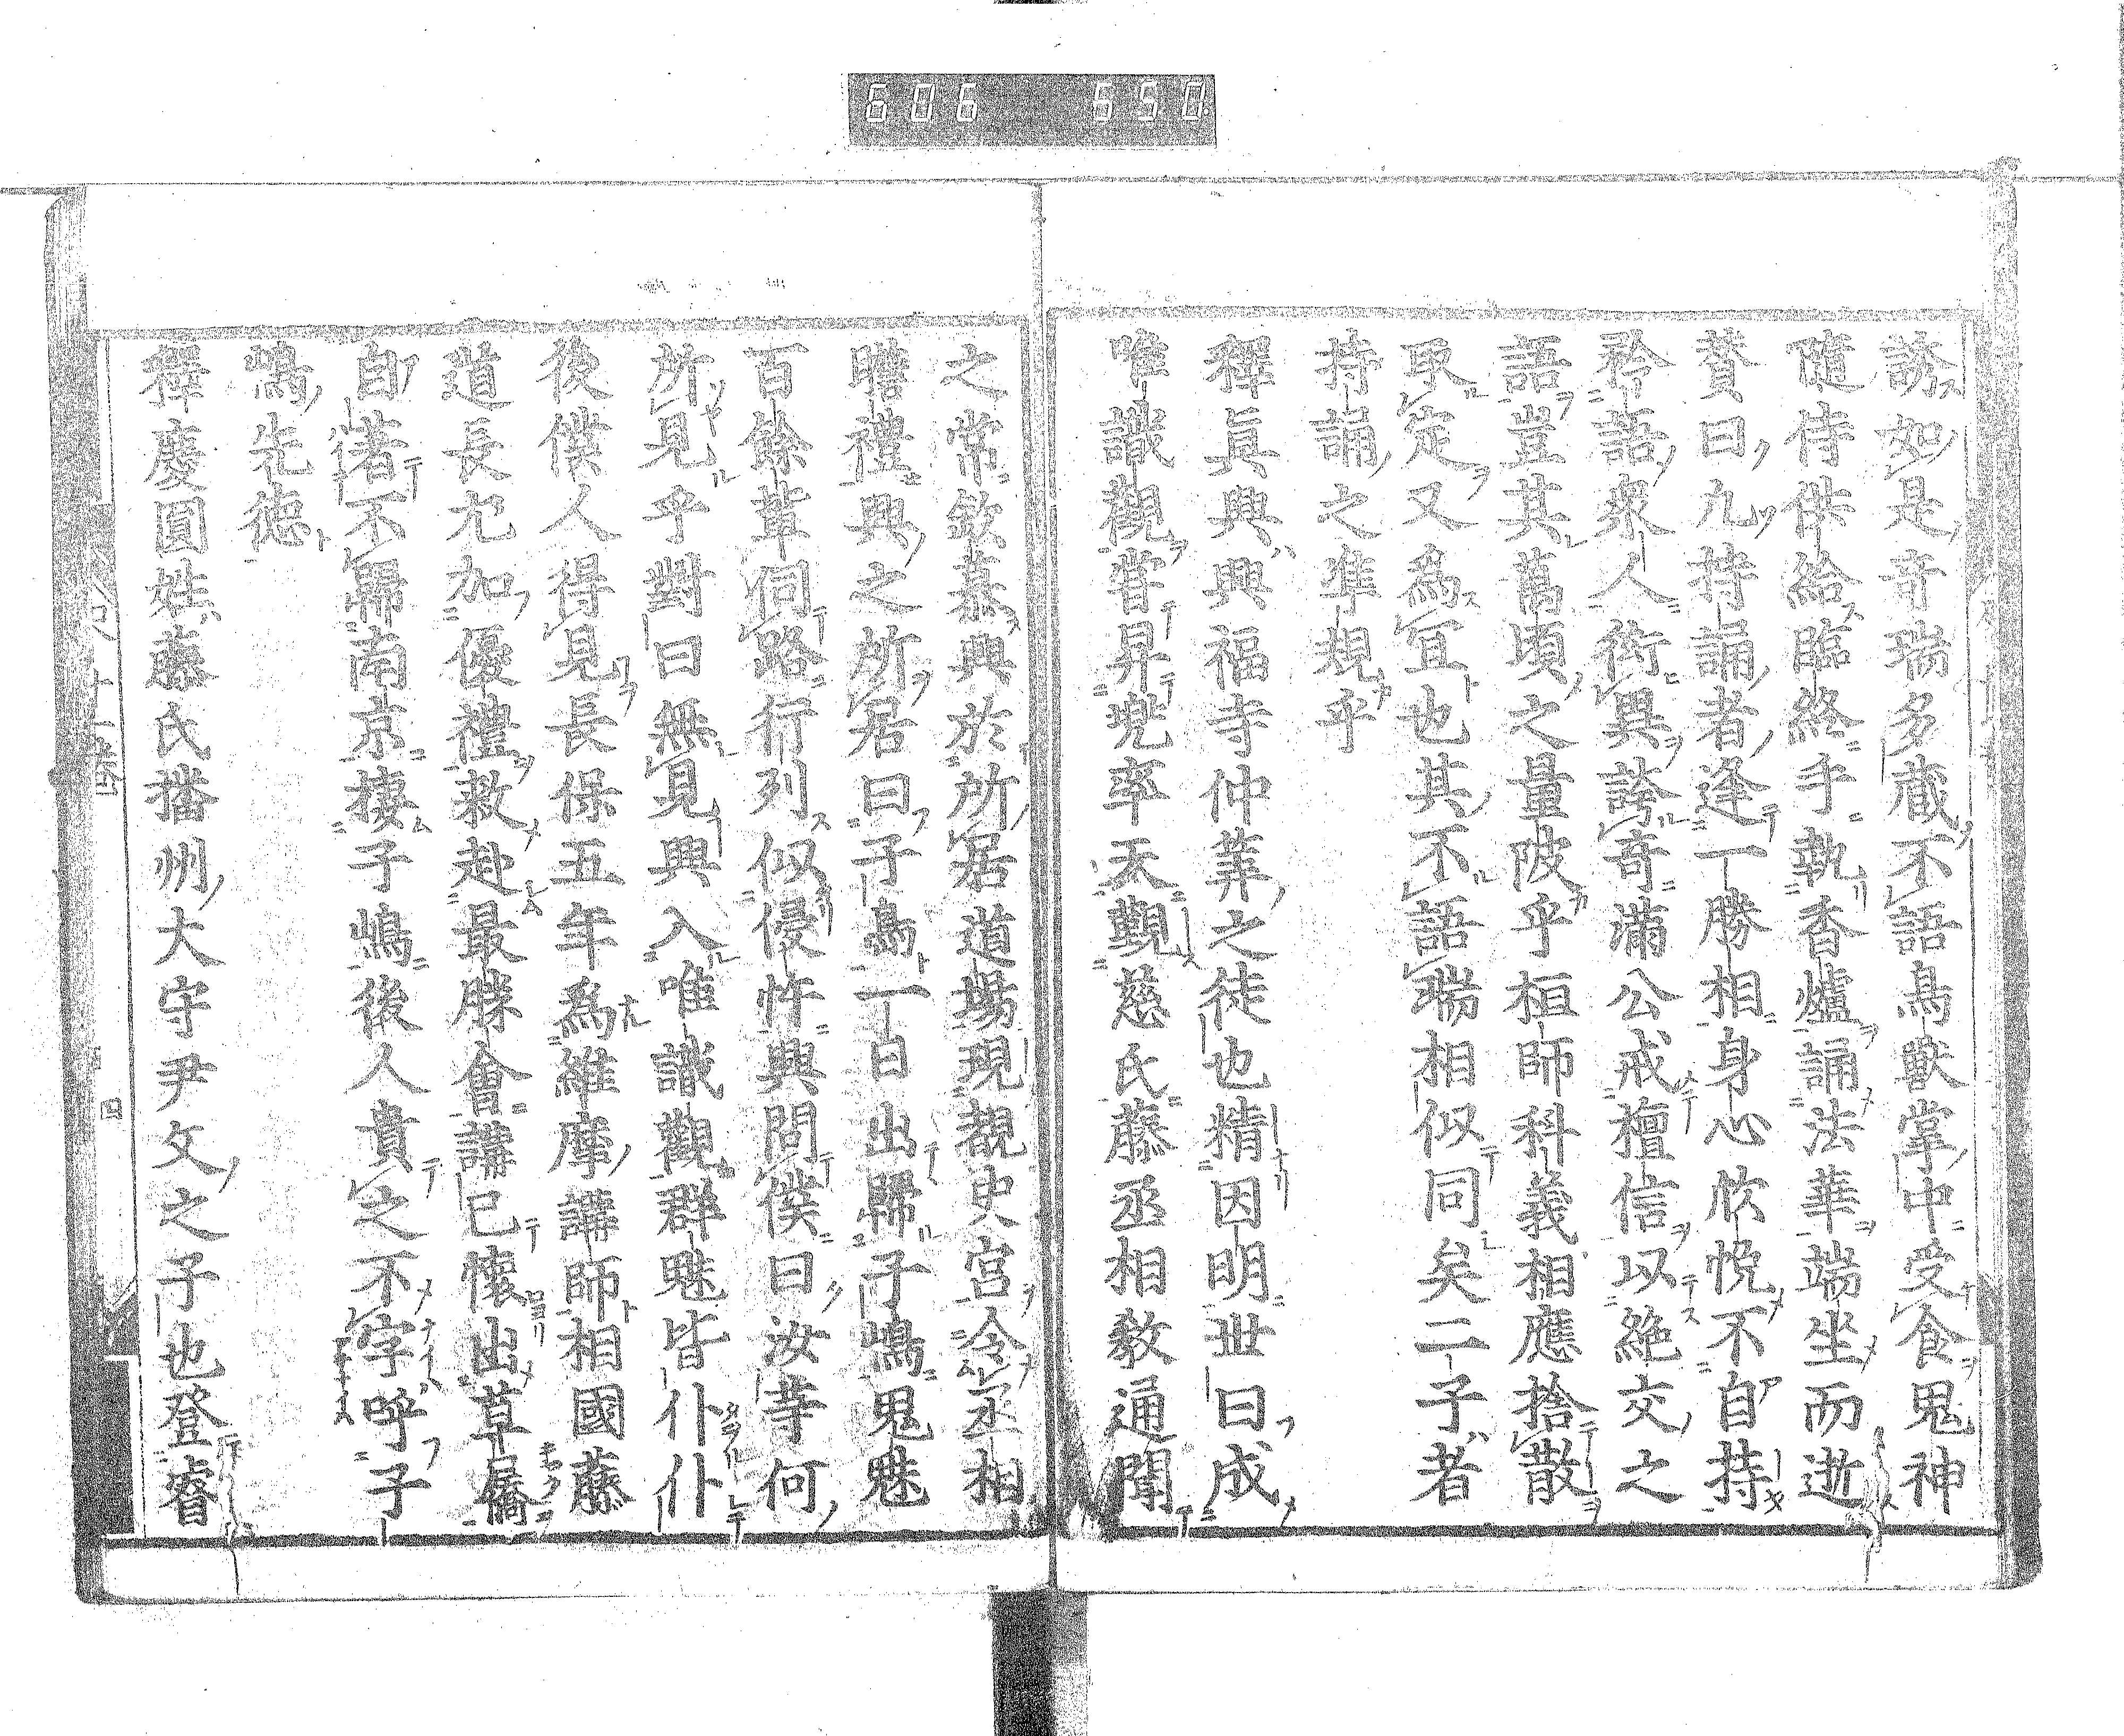 606 550
誘如是奇瑞多蔵不語鳥獸掌中受食鬼神
隨侍供給臨終手執香爐誦法華端坐而逝
賛曰九持誦者逢一勝相身心欣悅不自持
矜語衆人衒異誇奇滿公戒擅信以絶交之
語豈其萬頃之量陂乎桓師科義相應捨散
取定又爲宜也其不語瑞相似同矣二子者
持誦之準規乎
釋眞興興福寺仲筭之徒也精因明世曰成
唯識觀甞昇兜率天覲慈氏藤丞相敎通聞
之常欽慕興於所居道場現覩史宮令丞相
瞻禮興之所居曰子島一日出歸子嶋鬼魅
百餘輩伺路行列似侵忤興問僕曰汝等何
所見乎對曰無見興入唯識觀群魅皆仆仆
後僕人得見長保五年爲維摩講師相國藤
道長尤加優禮敕赴最勝會講已懷出草屩
自著不歸南京棲子嶋後人貴之不字呼子
嶋先德
釋慶圓姓藤氏播州大守尹文之子也登睿
四